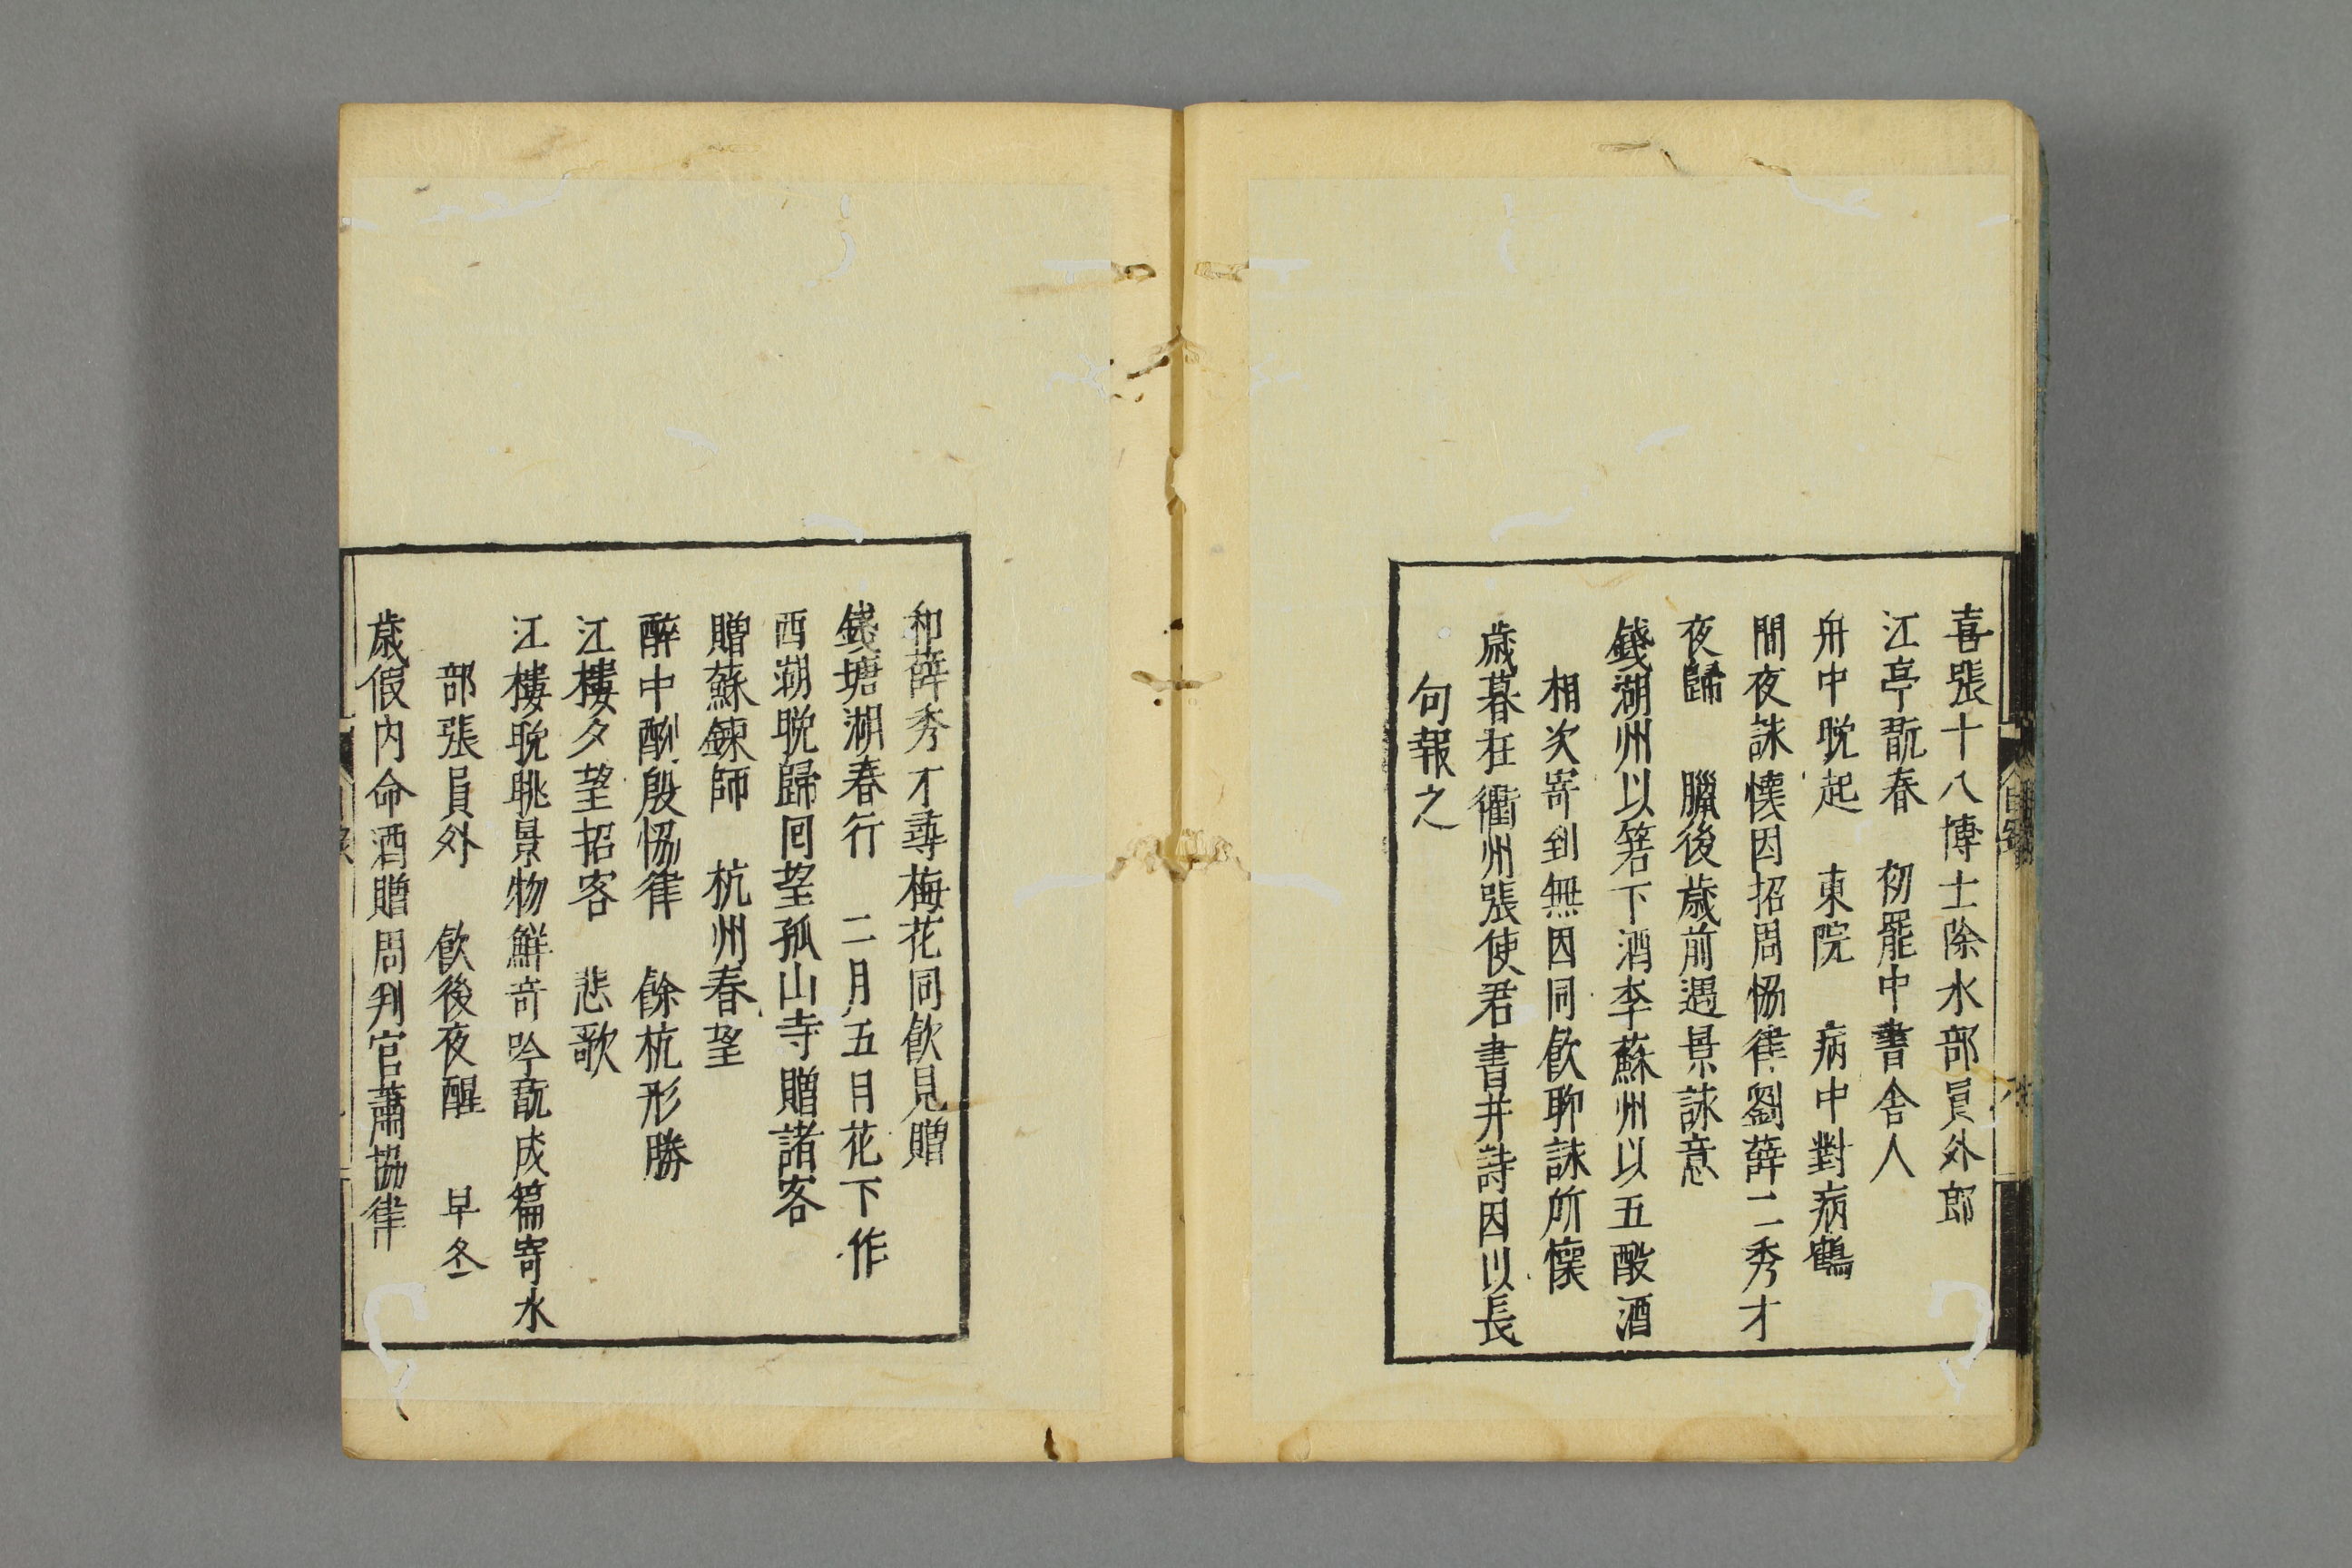 喜張十八博士除水部員外郎
江亭翫春　初罷中書舍人
舟中晚起　東院　病中對病鶴
閒夜詠懷因招周恊律劉薛二秀才
夜歸　臘後歲前遇景詠意
錢湖州以箬下酒李蘇州以五酘酒
相次寄到無因同飲聊詠所懷
歲暮在衢州張使君書并詩因以長
句報之
和薛秀才尋梅花同飲見贈
錢塘湖春行　二月五日花下作
西湖晚歸回望孤山寺贈諸客
贈蘇鍊師　杭州春望
醉中酬殷恊律　餘杭形勝
江樓夕望招客　悲歌
江樓晚眺景物鮮奇吟翫成篇寄水
部張員外　飲後夜醒　早冬
歲假內命酒贈周判官蕭協律